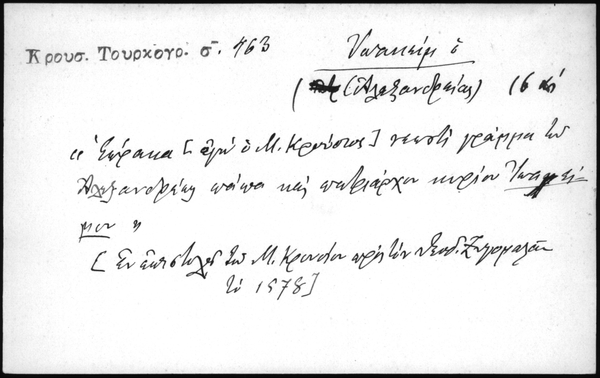 Κρουσ. Τουρκογρ. σ. 463
Ἰωακεὶμ ὁ
(Ἀλεξανδρείας) 16
"Εὕρακα [ἐγὼ ὁ Μ. Κρούσιος] γράμμα τοῦ
Ἀλεξανδρείας πάπα καὶ πατριάρχου κυρίου Ἰωακεί-
μου"
[Ἐν ἐπιστολῇ τοῦ Μ. Κρουσίου πρὸς τὸν Θεοδ. Ζυγομαλᾶν
τῷ 1578]